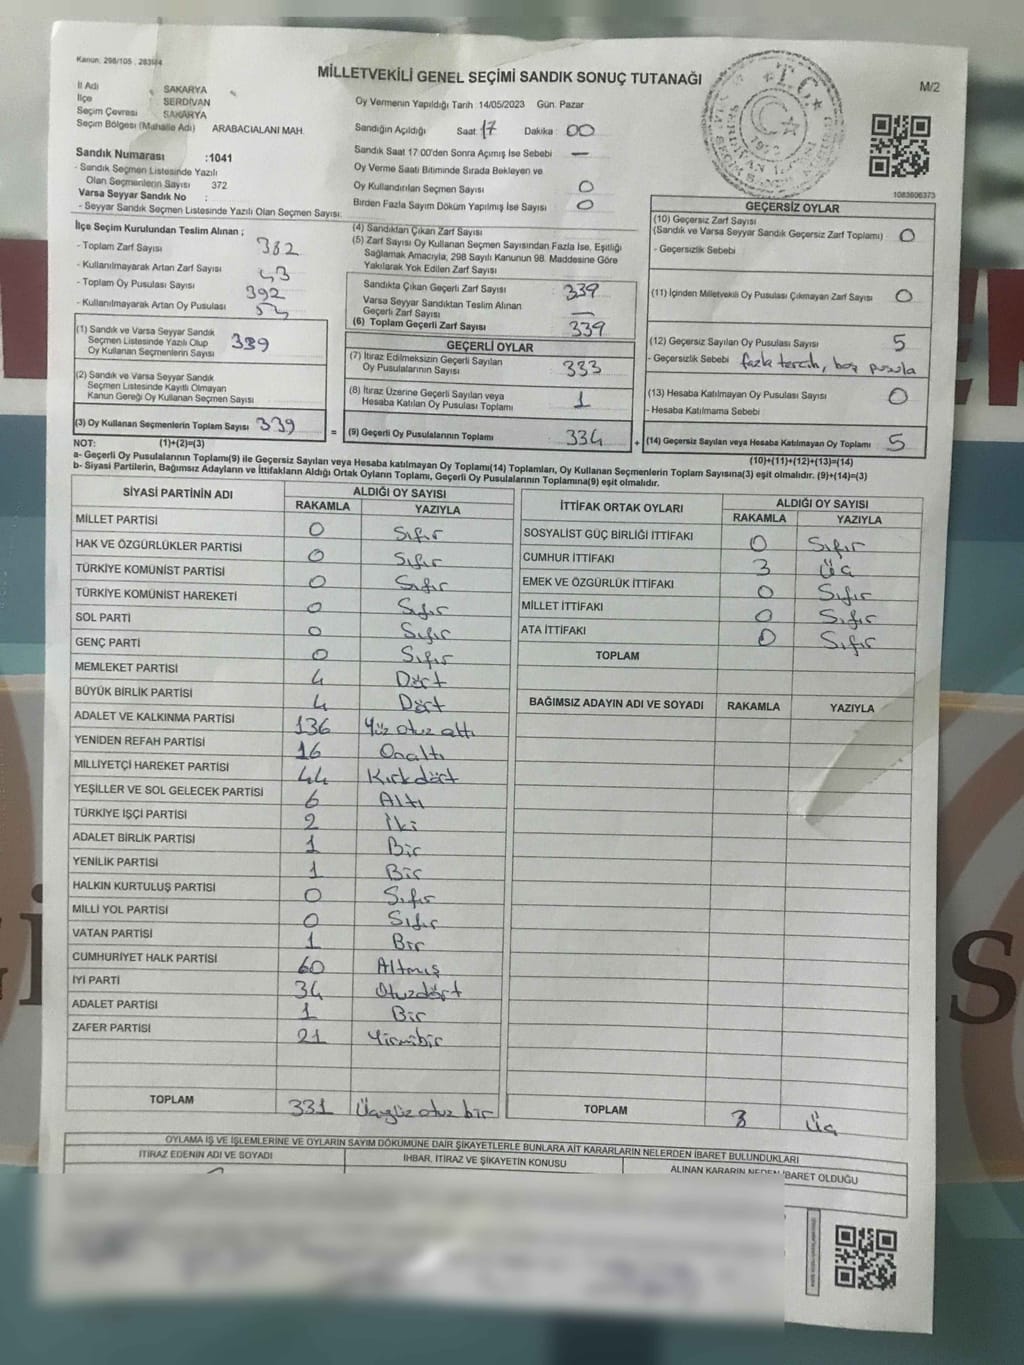 Kanun: 298/105, 283M/4
MİLLETVEKİLİ GENEL SEÇİMİ SANDIK SONUÇ TUTANAĞI
M/2
İl Adı SAKARYA
İlçe SERDİVAN
Seçim Çevresi SAKARYA
Seçim Bölgesi (Mahalle Adı) ARABACIALANI MAH.
Sandık Numarası :1041
- Sandık Seçmen Listesinde Yazılı
Olan Seçmenlerin Sayısı 372
Varsa Seyyar Sandık No :
- Seyyar Sandık Seçmen Listesinde Yazılı Olan Seçmen Sayısı:
Oy Vermenin Yapıldığı Tarih :14/05/2023 Gün. Pazar
Sandığın Açıldığı Saat: 17 Dakika : 00
Sandık Saat 17:00'den Sonra Açımış İse Sebebi —
Oy Verme Saati Bitiminde Sırada Bekleyen ve
Oy Kullandırılan Seçmen Sayısı 0
Birden Fazla Sayım Döküm Yapılmış İse Sayısı 0
T.C.
1083606373
İlçe Seçim Kurulundan Teslim Alınan ;
- Toplam Zarf Sayısı 382
- Kullanılmayarak Artan Zarf Sayısı 43
- Toplam Oy Pusulası Sayısı 392
- Kullanılmayarak Artan Oy Pusulası
(1) Sandık ve Varsa Seyyar Sandık
Seçmen Listesinde Yazılı Olup
Oy Kullanan Seçmenlerin Sayısı 339
(2) Sandık ve Varsa Seyyar Sandık
Seçmen Listesinde Kayıtlı Olmayan
Kanun Gereği Oy Kullanan Seçmen Sayısı
(3) Oy Kullanan Seçmenlerin Toplam Sayısı 339
(4) Sandıktan Çıkan Zarf Sayısı
(5) Zarf Sayısı Oy Kullanan Seçmen Sayısından Fazla İse, Eşitliği
Sağlamak Amacıyla, 298 Sayılı Kanunun 98. Maddesine Göre
Yakılarak Yok Edilen Zarf Sayısı
Sandıkta Çıkan Geçerli Zarf Sayısı : 339
Varsa Seyyar Sandıktan Teslim Alınan
Geçerli Zarf Sayısı : —
(6) Toplam Geçerli Zarf Sayısı 339
GEÇERLİ OYLAR
(7) İtiraz Edilmeksizin Geçerli Sayılan
Oy Pusulalarının Sayısı : 333
(8) İtiraz Üzerine Geçerli Sayılan veya
Hesaba Katılan Oy Pusulası Toplamı 1
= (9) Geçerli Oy Pusulalarının Toplamı : 334
GEÇERSİZ OYLAR
(10) Geçersiz Zarf Sayısı
(Sandık ve Varsa Seyyar Sandık Geçersiz Zarf Toplamı) 0
- Geçersizlik Sebebi
(11) İçinden Milletvekili Oy Pusulası Çıkmayan Zarf Sayısı 0
(12) Geçersiz Sayılan Oy Pusulası Sayısı 5
- Geçersizlik Sebebi fazla tercih, boş pusula
(13) Hesaba Katılmayan Oy Pusulası Sayısı 0
- Hesaba Katılmama Sebebi
+ (14) Geçersiz Sayılan veya Hesaba Katılmayan Oy Toplamı 5
NOT: (1)+(2)=(3)
(10)+(11)+(12)+(13)=(14)
a- Geçerli Oy Pusulalarının Toplamı(9) ile Geçersiz Sayılan veya Hesaba katılmayan Oy Toplamı(14) Toplamları, Oy Kullanan Seçmenlerin Toplam Sayısına(3) eşit olmalıdır. (9)+(14)=(3)
b- Siyasi Partilerin, Bağımsız Adayların ve İttifakların Aldığı Ortak Oyların Toplamı, Geçerli Oy Pusulalarının Toplamına(9) eşit olmalıdır.
SİYASİ PARTİNİN ADI ALDIĞI OY SAYISI
RAKAMLA YAZIYLA
MİLLET PARTİSİ 0 Sıfır
HAK VE ÖZGÜRLÜKLER PARTİSİ 0 Sıfır
TÜRKİYE KOMÜNİST PARTİSİ 0 Sıfır
TÜRKİYE KOMÜNİST HAREKETİ 0 Sıfır
SOL PARTİ 0 Sıfır
GENÇ PARTİ 0 Sıfır
MEMLEKET PARTİSİ 4 Dört
BÜYÜK BİRLİK PARTİSİ 4 Dört
ADALET VE KALKINMA PARTİSİ 136 Yüz otuz altı
YENİDEN REFAH PARTİSİ 16 Onaltı
MİLLİYETÇİ HAREKET PARTİSİ 44 Kırkdört
YEŞİLLER VE SOL GELECEK PARTİSİ 6 Altı
TÜRKİYE İŞÇİ PARTİSİ 2 İki
ADALET BİRLİK PARTİSİ 1 Bir
YENİLİK PARTİSİ 1 Bir
HALKIN KURTULUŞ PARTİSİ 0 Sıfır
MİLLİ YOL PARTİSİ 0 Sıfır
VATAN PARTİSİ 1 Bir
CUMHURİYET HALK PARTİSİ 60 Altmış
İYİ PARTİ 34 Otuzdört
ADALET PARTİSİ 1 Bir
ZAFER PARTİSİ 21 Yirmibir
TOPLAM 331 Üçyüz otuz bir
İTTİFAK ORTAK OYLARI ALDIĞI OY SAYISI
RAKAMLA YAZIYLA
SOSYALİST GÜÇ BİRLİĞİ İTTİFAKI 0 Sıfır
CUMHUR İTTİFAKI 3 Üç
EMEK VE ÖZGÜRLÜK İTTİFAKI 0 Sıfır
MİLLET İTTİFAKI 0 Sıfır
ATA İTTİFAKI 0 Sıfır
TOPLAM
BAĞIMSIZ ADAYIN ADI VE SOYADI RAKAMLA YAZIYLA
TOPLAM 3 Üç
OYLAMA İŞ VE İŞLEMLERİNE VE OYLARIN SAYIM DÖKÜMÜNE DAİR ŞİKAYETLERLE BUNLARA AİT KARARLARIN NELERDEN İBARET BULUNDUKLARI
İTİRAZ EDENİN ADI VE SOYADI İHBAR, İTİRAZ VE ŞİKAYETİN KONUSU ALINAN KARARIN NEDEN İBARET OLDUĞU